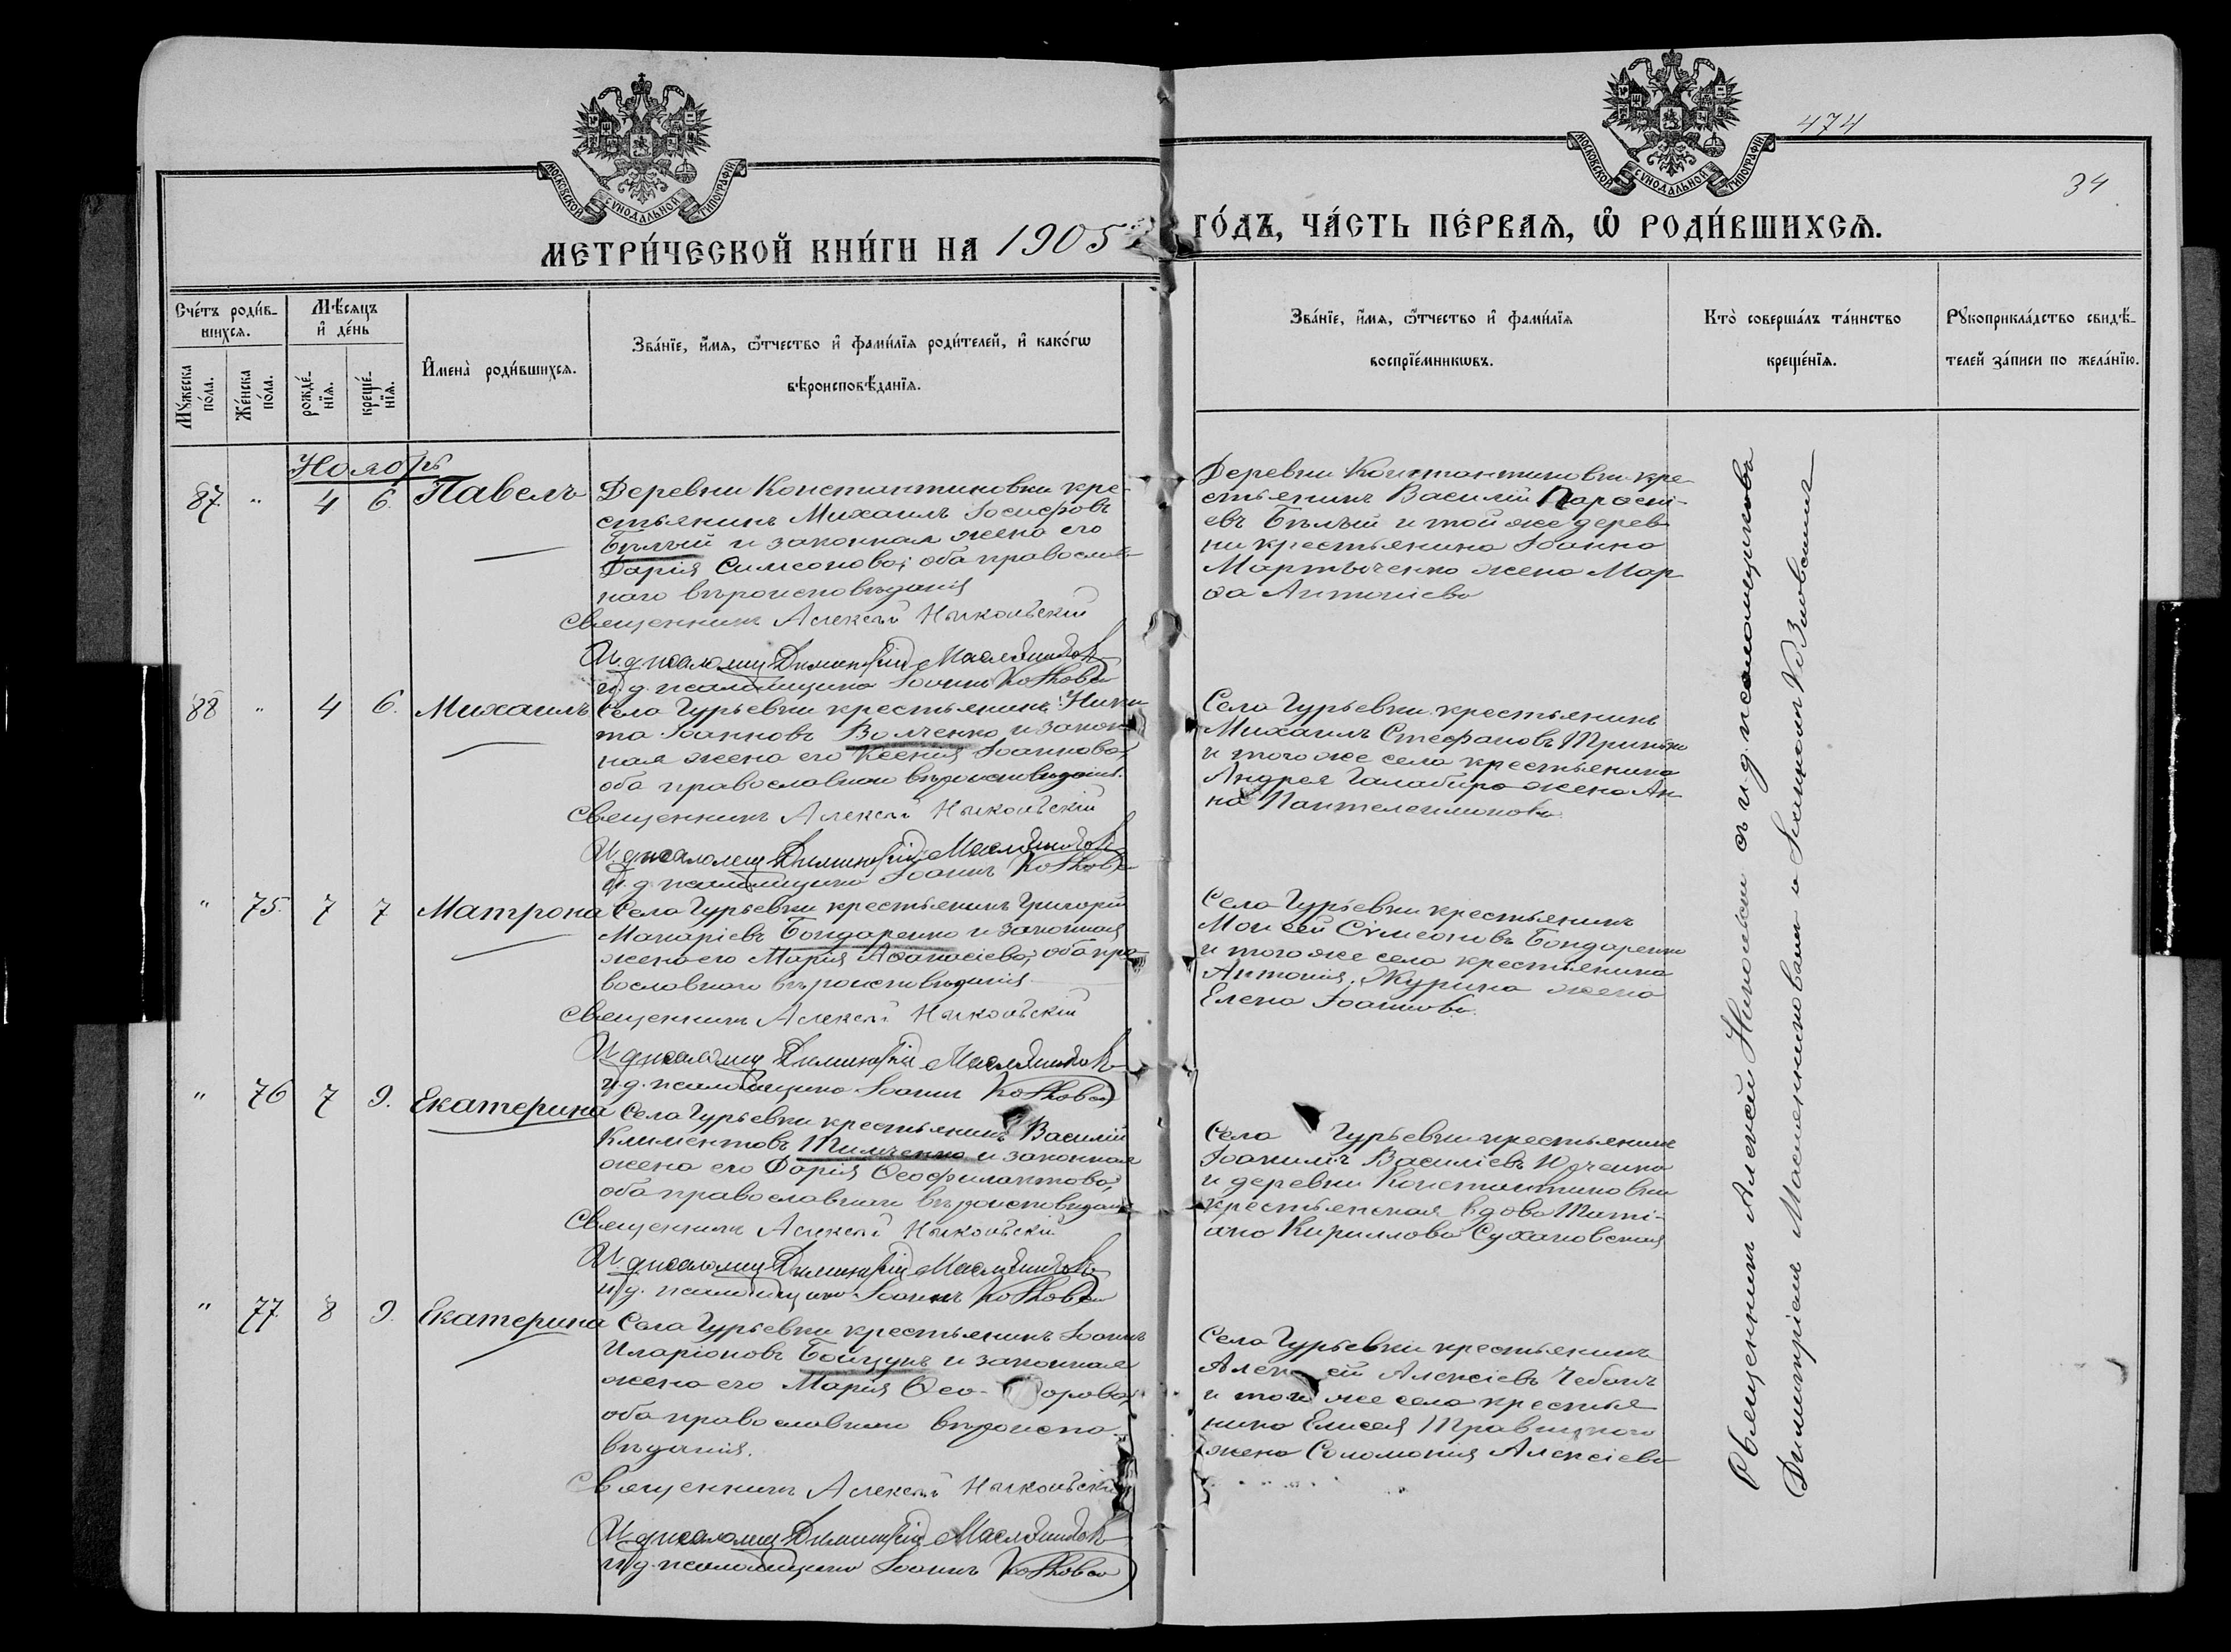 474
34
МОСКОВСКОЙ СѴНОДАЛЬНОЙ ТИПОГРАФІИ
МОСКОВСКОЙ СѴНОДАЛЬНОЙ ТИПОГРАФІИ
МЕТРИ́ЧЕСКОЙ КНИ́ГИ НА 1905 ГО́ДЪ, ЧА́СТЬ ПЕ́РВАѦ, Ѡ҆ РОДИ́ВШИХСѦ.
Сче́тъ роди́в-
шихсѧ.
Мѣ́сѧцъ
и҆ де́нь
Му́жеска по́ла.
Же́нска по́ла.
рожде́-нїѧ.
креще́-нїѧ.
И҆мена̀ роди́вшихсѧ.
Зва́нїе, и҆́мѧ, ѻ҆́тчество и҆ фами́лїѧ роди́телей, и҆ како́гѡ
вѣроисповѣ́данїѧ.
Зва́нїе, и҆́мѧ, ѻ҆́тчество и҆ фами́лїѧ
воспрїе́мникѡвъ.
Кто̀ соверша́лъ та́инство
креще́нїѧ.
Рꙋкоприкла́дство свидѣ́-
телей за́писи по жела́нїю.
Ноябрь
87. " 4 6. Павелъ
Деревни Константиновки кре-
стьянинъ Михаилъ Іосифовъ
Бѣлый и законная жена его
Дарія Симеонова; оба православ
наго вѣроисповѣданія
Священникъ Алексѣй Никольскій
И. д. псаломщ. Димитрій Масленниковъ
и. д. псаломщика Іоаннъ
Деревни Константиновки кре-
стьянинъ Василій
евъ Бѣлый и той же дерев-
ни крестьянина Іоанна
Мартыченко жена Мар
ѳа Антоніева
88 " 4 6. Михаилъ
Села Гурьевки крестьянинъ Ники
та Іоанновъ Волченко и закон
ная жена его Ксенія Іоаннова;
оба православнаго вѣроисповѣданія.
Священникъ Алексѣй Никольскій
И. д. псаломщ. Димитрій Масленниковъ
и. д. псаломщика Іоаннъ
Села Гурьевки крестьянинъ
Михаилъ Стефановъ
и того же села крестьянина
Андрея жена Ан
на Пантелеимонова
" 75. 7 7 Матрона
Села Гурьевки крестьянинъ Григорій
Макаріевъ Бондаренко и законная
жена его Марія Аѳанасіева; оба пра-
вославнаго вѣроисповѣданія
Священникъ Алексѣй Никольскій
И. д. псаломщ. Димитрій Масленниковъ
и. д. псаломщика Іоаннъ
Села Гурьевки крестьянинъ
Моисей Симеоновъ Бондаренко
и того же села крестьянина
Антонія Журина жена
Елена Іоаннова.
" 76 7 9. Екатерина
Села Гурьевки крестьянинъ Василій
Климентовъ Тимченко и законная
жена его Дарія Ѳеофилактова;
оба православнаго вѣроисповѣданія
Священникъ Алексѣй Никольскій
И. д. псаломщ. Димитрій Масленниковъ
и. д. псаломщика Іоаннъ
Села Гурьевки крестьянинъ
Іоакимъ Василіевъ Юрченко
и деревни Константиновки
крестьянская вдова Тати-
ана Кириллова Сухановская
" 77 8 9. Екатерина
Села Гурьевки крестьянинъ Іоаннъ
Иларіоновъ Бойцунъ и законная
жена его Марія Ѳео- орова;
оба православнаго вѣроиспо-
вѣданія.
Священникъ Алексѣй Никольскій
И. д. псаломщ. Димитрій Масленниковъ
и. д. псаломщика Іоаннъ
Села Гурьевки крестьянинъ
Алек ѣй Алексіевъ Чебанъ
и того же села крестья
нина Елисея Травицкаго
жена Соломонія Алексіева
Священникъ Алексѣй Никольскій съ и. д. псаломщиковъ
Димитріемъ Масленниковымъ и Іоанномъ